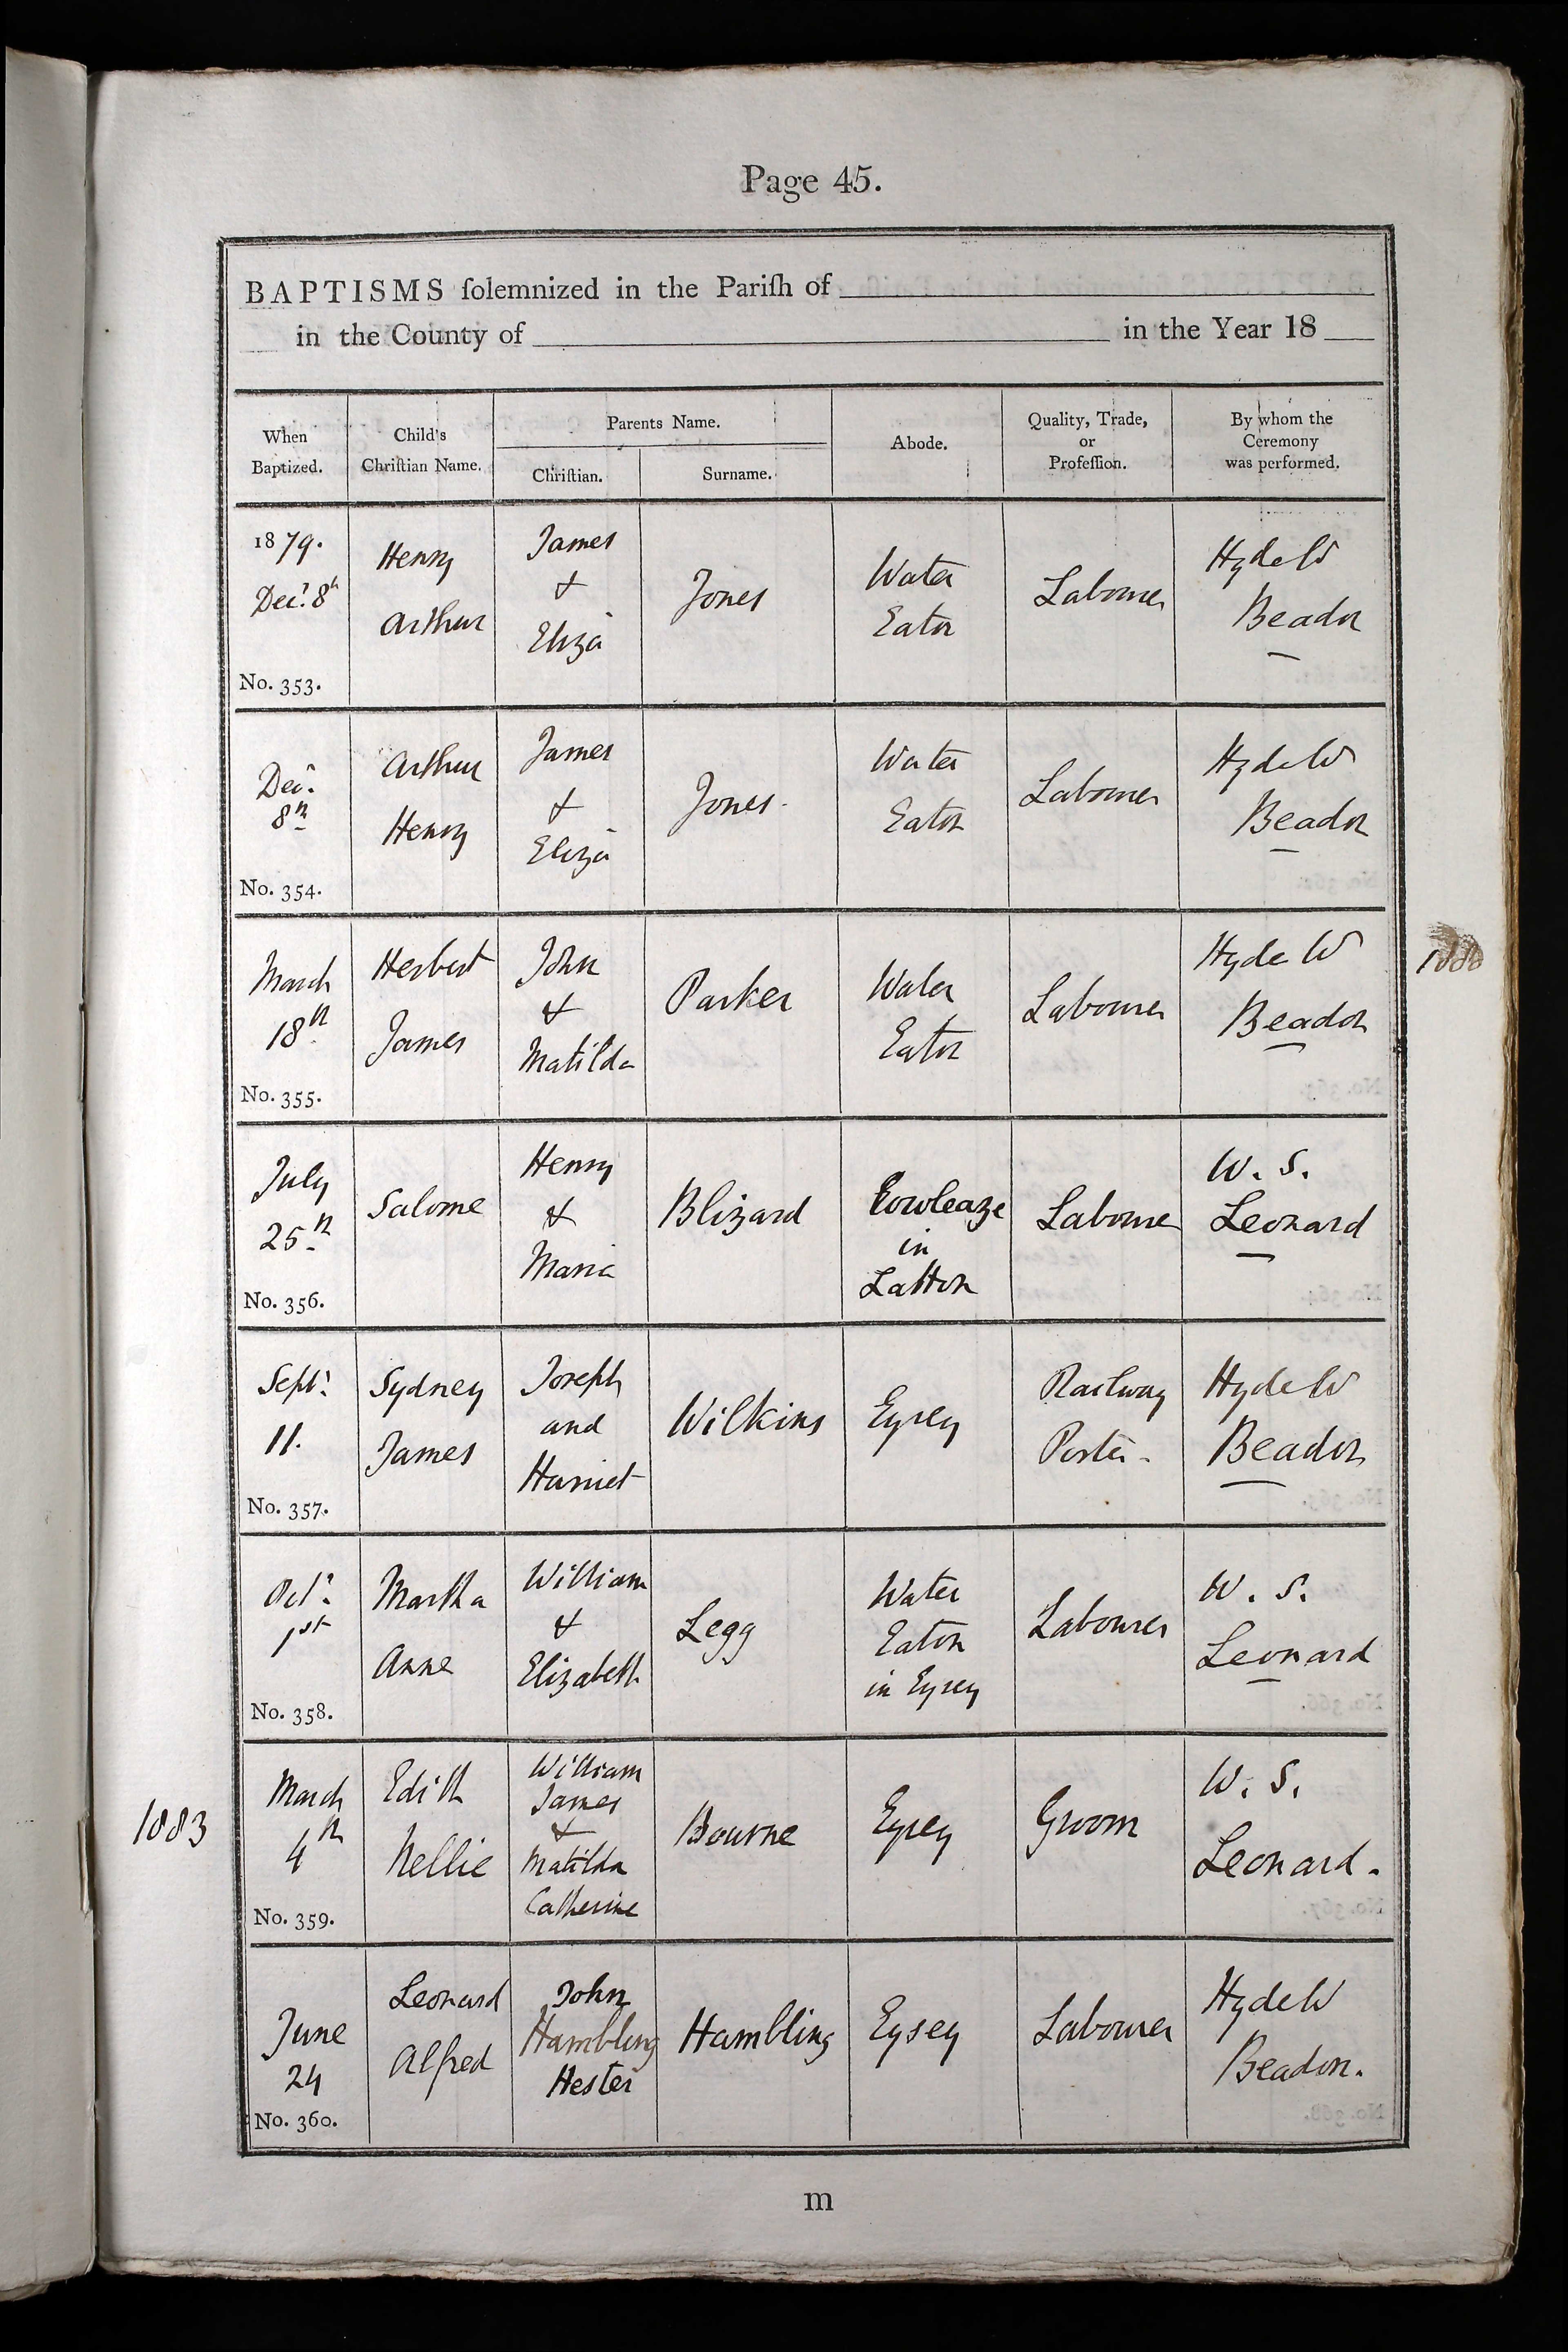 Page 45.
BAPTISMS ſolemnized in the Pariſh of
in the County of in the Year 18
When Baptized.
Child's Chriſtian Name.
Parents Name.
Chriſtian.
Surname.
Abode.
Quality, Trade, or Profeſſion.
By whom the Ceremony was performed.
1879.
Decr. 8th
No. 353.
Henry
Arthur
James
&
Eliza
Jones
Water
Eaton
Labourer
Hyde W
Beadon
Decr.
8th
No. 354.
Arthur
Henry
James
&
Eliza
Jones.
Water
Eaton
Labourer
Hyde W
Beadon
March
18th
No. 355.
Herbert
James
John
&
Matilda
Parker
Water
Eaton
Labourer
Hyde W
Beadon
1880
July
25th
No. 356.
Salome
Henry
&
Maria
Blizard
Cowleaze
in
Latton
Labourer
W. S.
Leonard
Septr.
11.
No. 357.
Sydney
James
Joseph
and
Harriet
Wilkins
Eysey
Railway
Porter.
Hyde W
Beadon
Octr.
1st
No. 358.
Martha
Anne
William
&
Elizabeth
Legg
Water
Eaton
in Eysey
Labourer
W. S.
Leonard
1883
March
4th
No. 359.
Edith
Nellie
William
James
&
Matilda
Catherine
Bourne
Eysey
Groom
W. S.
Leonard.
June
24
No. 360.
Leonard
Alfred
John
Hambling
Hester
Hambling
Eysey
Labourer
Hyde W
Beadon.
m